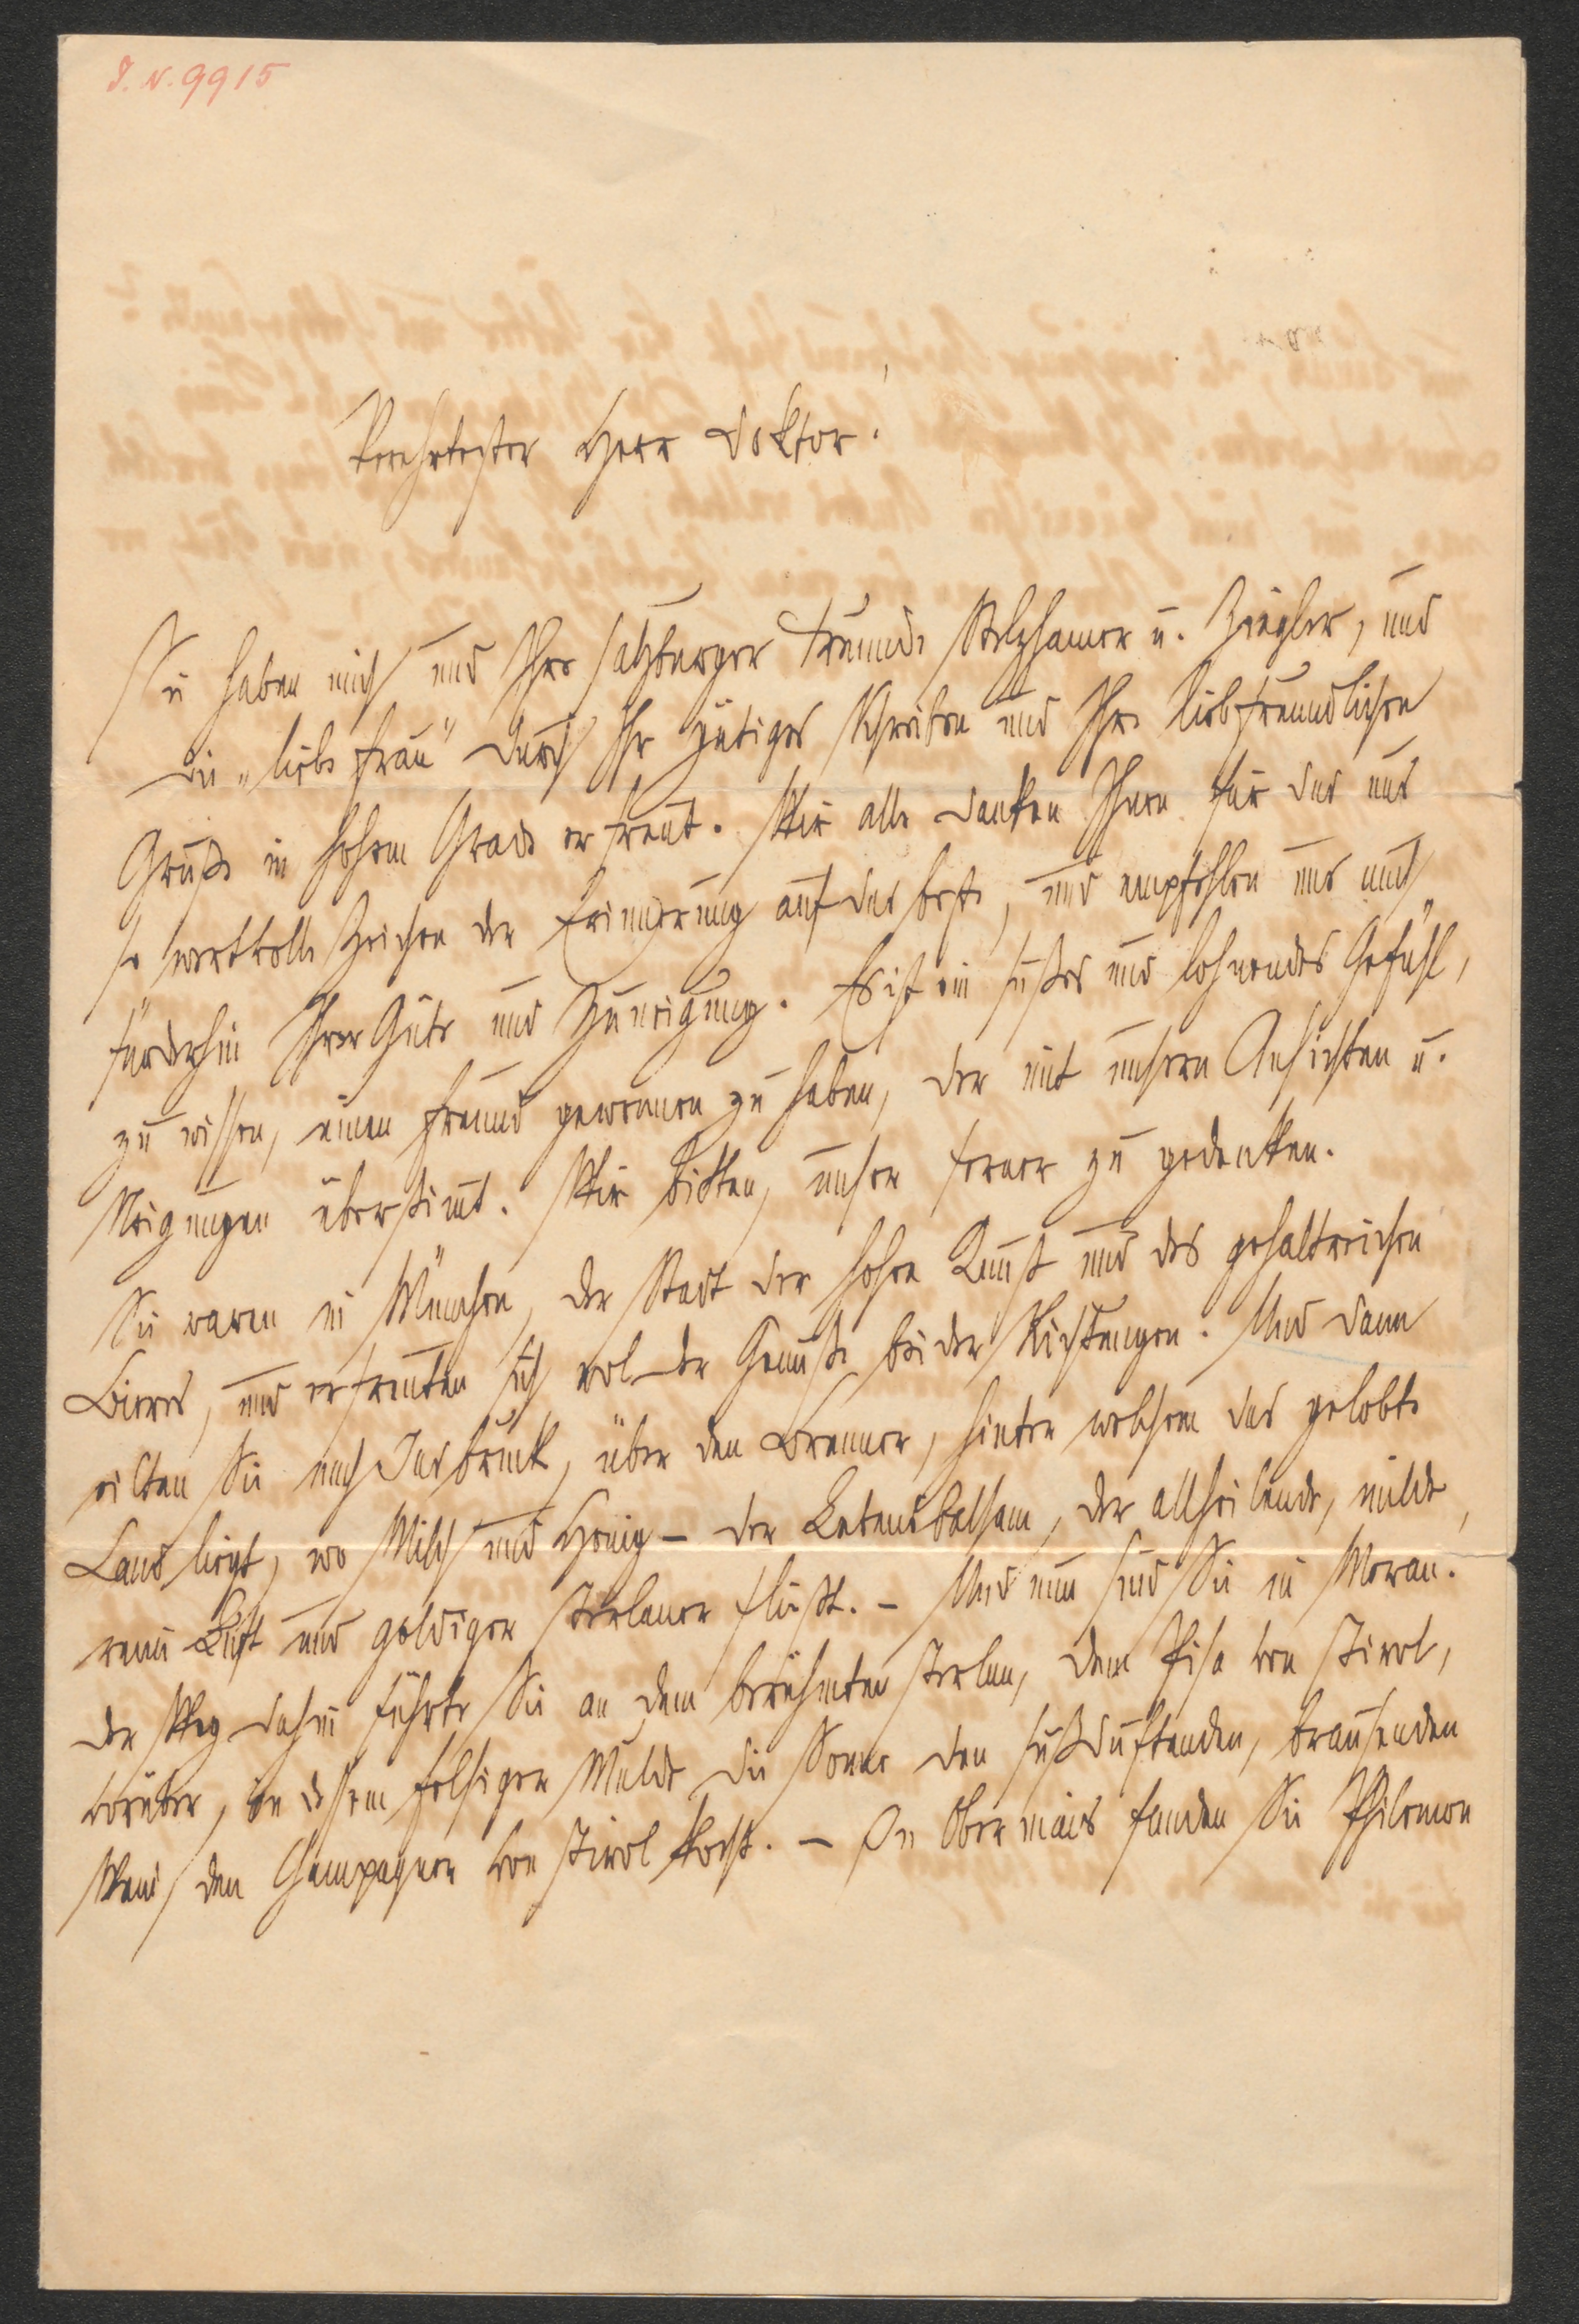 I. N. 9915
Verehrtester Herr Doktor!
Sie haben mich und Ihre salzburger Freunde Stelzhamer u. Ziegler, und
die „liebe Frau" durch Ihr gütiges Schreiben und Ihre liebfreundlichen
Grüße in hohem Grade erfreut. Wir alle danken Ihnen für das uns
so wertvolle Zeichen der Erinnerung auf das beste, und empfehlen uns auch
fürderhin Ihrer Güte und Zuneigung. Es ist ein süßes und lohnendes Gefühl,
zu wissen, einen Freund gewonnen zu haben, der mit unsern Ansichten u.
Neigungen überstimt. Wir bitten, unser ferner zu gedenken.
Sie waren in München, der Stadt der hohen Kunst und des gehaltreichen
Bieres, und erfreuten sich wol der Genüße beider Richtungen. Und dann
eilten Sie nach Insbruck, über den Brenner, hinter welchem das gelobte
Land liegt, wo Milch und Honig – der Lebensbalsam, der allheilende, milde,
reine Luft und goldiger Terlaner fließt. – Und nun sind Sie in Meran.
Der Weg dahin führte Sie an dem berühmten Terlan, dem Pisa von Tirol,
vorüber, in dessen felsiger Mulde die Sonne den süßduftenden, brausenden
Wein, den Champagner von Tirol kocht. – In Obermais fanden Sie Philemon